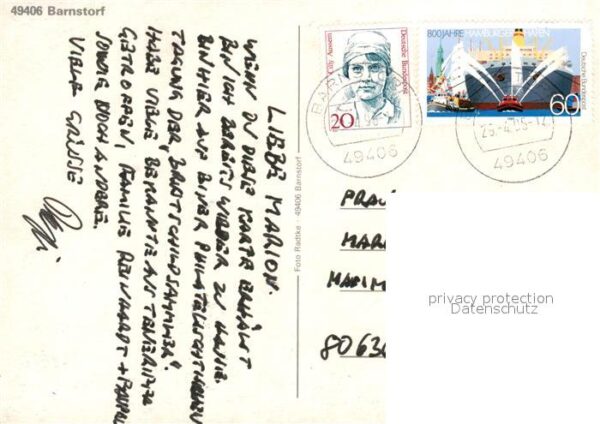 49406 Barnstorf
LIEBE MARION.
WENN DU DIESE KARTE ERHÄLST
BIN ICH BEREITS WIEDER ZU HAUSE.
BIN HIER AUF EINER PHILATELISTISCHEN
TAGUNG DER
HABE VIELE BEKANNTE AUS
GETROFFEN, FAMILIE REINHARDT +
SOWIE NOCH ANDERE.
VIELE GRÜSSE
Foto Radtke · 49406 Barnstorf
Cilly Aussem
Deutsche Bundespost
20
800 JAHRE HAMBURGER HAFEN
Deutsche Bundespost
60
49406
49406
FRAU
MAR
80636
privacy protection
Datenschutz